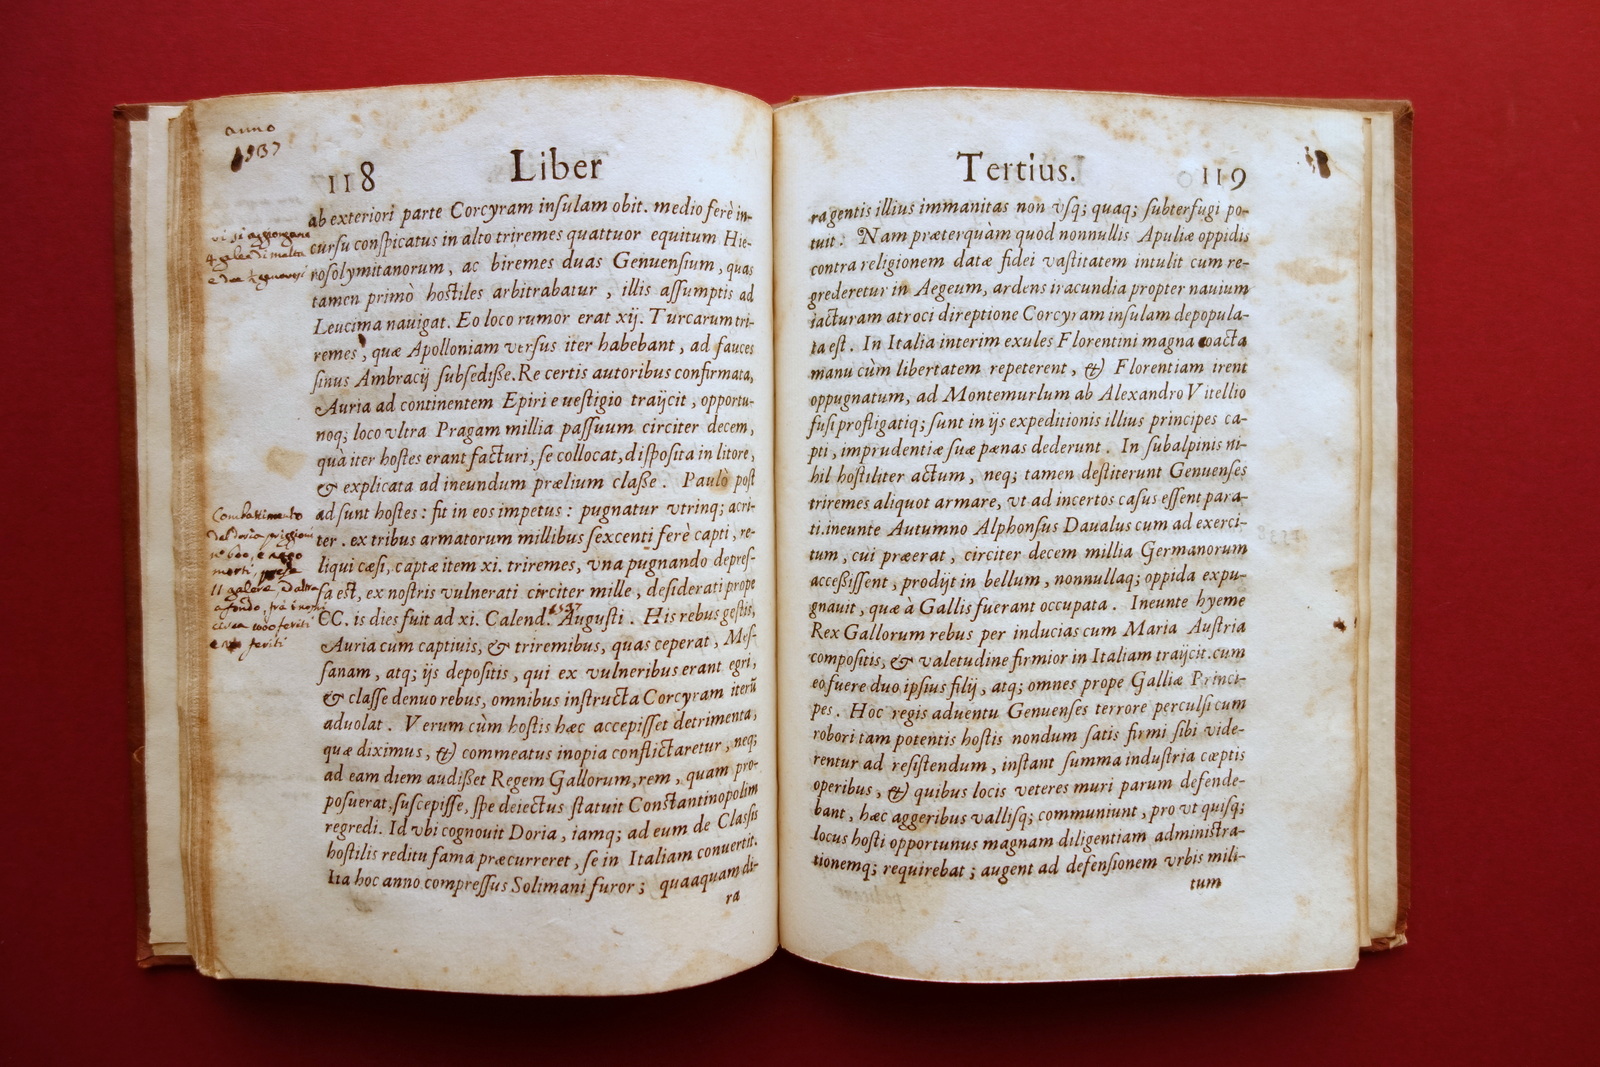 anno
1537
118 Liber
ab exteriori parte Corcyram inſulam obit. medio ferè in-
curſu conſpicatus in alto triremes quattuor equitum Hie-
roſolymitanorum, ac biremes duas Genuenſium, quas
tamen primò hoſtiles arbitrabatur, illis aſſumptis ad
Leucima nauigat. Eo loco rumor erat xij. Turcarum tri-
remes, quæ Apolloniam verſus iter habebant, ad fauces
ſinus Ambracij ſubſediſſe. Re certis autoribus confirmata,
Auria ad continentem Epiri e veſtigio traijcit, opportu-
noq; loco vltra Pragam millia paſſuum circiter decem,
quà iter hoſtes erant facturi, ſe collocat, diſpoſita in litore,
& explicata ad ineundum prælium claſſe. Paulò poſt
adſunt hoſtes: fit in eos impetus: pugnatur vtrinq; acri-
ter. ex tribus armatorum millibus ſexcenti ferè capti, re-
liqui cæſi, captæ item xi. triremes, vna pugnando depreſ-
ſa est, ex noſtris vulnerati circiter mille, deſiderati prope
CC. is dies fuit ad xi. Calend. Auguſti. His rebus geſtis,
1537
Auria cum captiuis, & triremibus, quas ceperat, Meſ-
ſanam, atq; ijs depoſitis, qui ex vulneribus erant egri,
& claſſe denuo rebus, omnibus inſtructa Corcyram iterũ
aduolat. Verum cùm hoſtis hæc accepiſſet detrimenta,
quæ diximus, & commeatus inopia conflictaretur, neq;
ad eam diem audiſſet Regem Gallorum, rem, quam pro-
poſuerat, ſuſcepiſſe, ſpe deiectus ſtatuit Conſtantinopolim
regredi. Id vbi cognouit Doria, iamq; ad eum de Claſſis
hoſtilis reditu fama præcurreret, ſe in Italiam conuertit.
Ita hoc anno compreſſus Solimani furor; quaaquam di-
ra
4 galee di malta
Combatimento
del doria priggioni
morti
11 galere
1000 feriti
feriti
Tertius. 119
ra gentis illius immanitas non vſq; quaq; ſubterfugi po-
tuit: Nam præterquàm quod nonnullis Apuliæ oppidis
contra religionem datæ fidei vaſtitatem intulit cum re-
grederetur in Aegeum, ardens iracundia propter nauium
iacturam atroci direptione Corcyram inſulam depopula-
ta eſt. In Italia interim exules Florentini magna coacta
manu cùm libertatem repeterent, & Florentiam irent
oppugnatum, ad Montemurlum ab Alexandro Vitellio
fuſi profligatiq; ſunt in ijs expeditionis illius principes ca-
pti, imprudentiæ ſuæ pænas dederunt. In ſubalpinis ni-
hil hoſtiliter actum, neq; tamen deſtiterunt Genuenſes
triremes aliquot armare, vt ad incertos caſus eſſent para-
ti. ineunte Autumno Alphonſus Daualus cum ad exerci-
tum, cui præerat, circiter decem millia Germanorum
acceſſiſſent, prodijt in bellum, nonnullaq; oppida expu-
gnauit, quæ à Gallis fuerant occupata. Ineunte hyeme
Rex Gallorum rebus per inducias cum Maria Auſtria
compoſitis, & valetudine firmior in Italiam traijcit. cum
eo fuere duo ipſius filij, atq; omnes prope Galliæ Princi-
pes. Hoc regis aduentu Genuenſes terrore perculſi cum
robori tam potentis hoſtis nondum ſatis firmi ſibi vide-
rentur ad reſiſtendum, inſtant ſumma induſtria cæptis
operibus, & quibus locis veteres muri parum defende-
bant, hæc aggeribus valliſq; communiunt, pro vt quiſq;
locus hoſti opportunus magnam diligentiam adminiſtra-
tionemq; requirebat; augent ad defenſionem vrbis mili-
tum